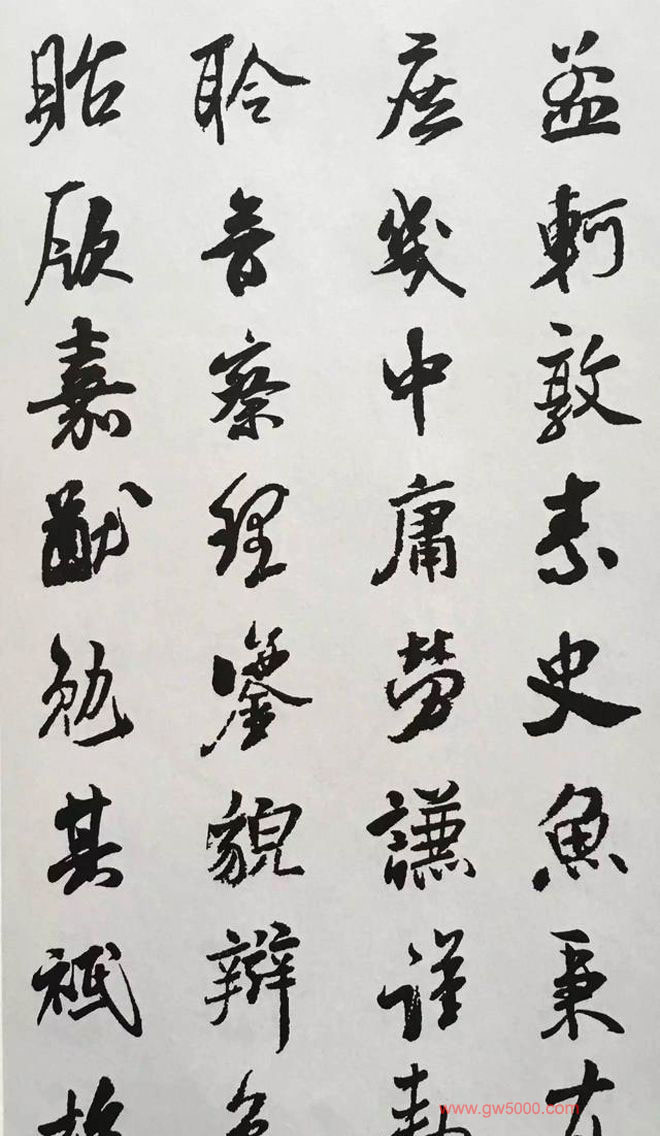 孟軻敦素史魚秉
庶幾中庸勞謙謹
聆音察理鑒貌辯
貽厥嘉猷勉其祗
www.gw5000.com